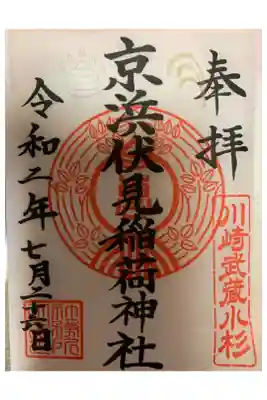 奉拝
川崎武蔵小杉
京浜伏見稲荷神社
令和二年七月二十六日